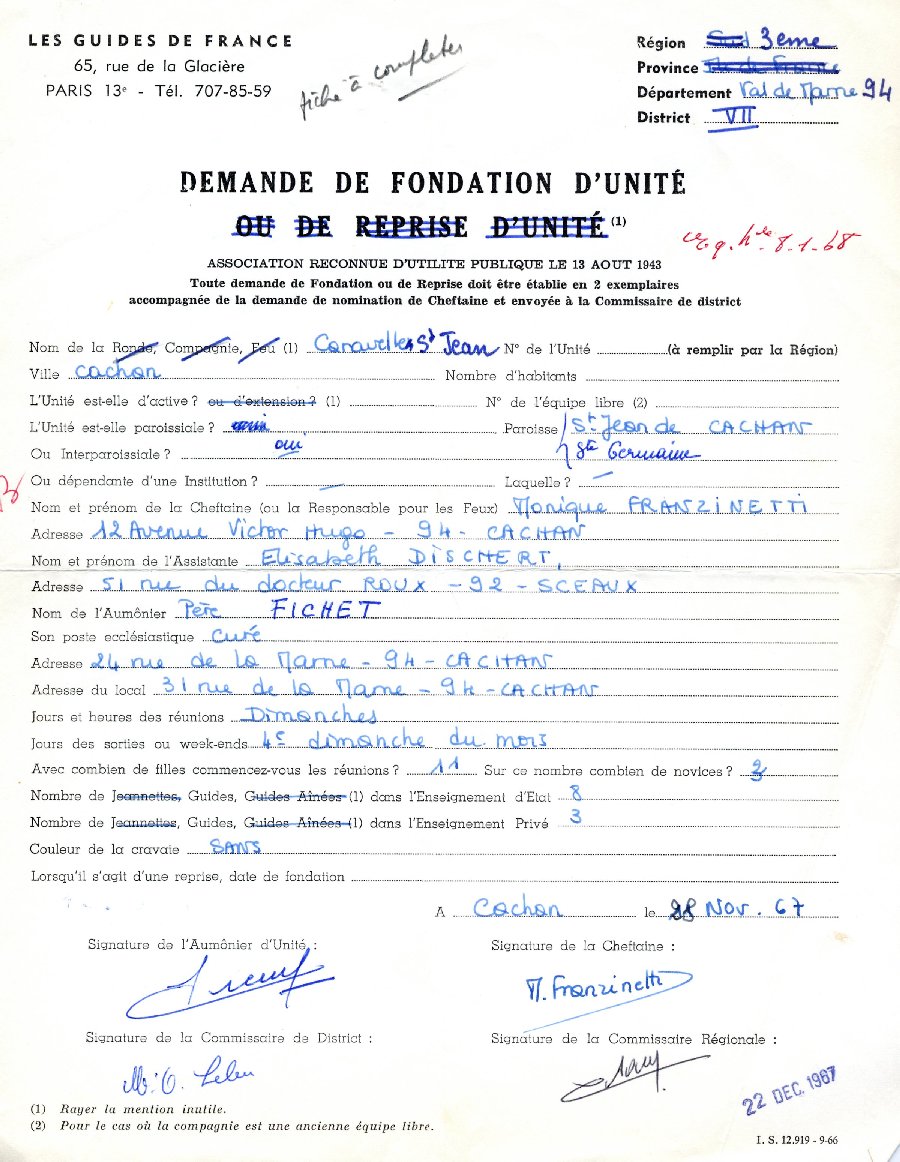 LES GUIDES DE FRANCE
65, rue de la Glacière
PARIS 13e - Tél. 707-85-59
fiche à completer
Région Sud 3eme
Province Ile de France
Département Val de Marne 94
District VII
DEMANDE DE FONDATION D'UNITÉ
OU DE REPRISE D'UNITÉ (1)
8.1.68
ASSOCIATION RECONNUE D'UTILITE PUBLIQUE LE 13 AOUT 1943
Toute demande de Fondation ou de Reprise doit être établie en 2 exemplaires
accompagnée de la demande de nomination de Cheftaine et envoyée à la Commissaire de district
Nom de la Ronde, Compagnie, Feu (1) Caravelles St Jean N° de l'Unité (à remplir par la Région)
Ville Cachan Nombre d'habitants
L'Unité est-elle d'active ? ou d'extension ? (1) N° de l'équipe libre (2)
L'Unité est-elle paroissiale ? oui Paroisse St Jean de CACHAN
Ou Interparoissiale ? oui Ste Germaine
Ou dépendante d'une Institution ? — Laquelle ? —
Nom et prénom de la Cheftaine (ou la Responsable pour les Feux) Monique FRANZINETTI
Adresse 12 Avenue Victor Hugo - 94 - CACHAN
Nom et prénom de l'Assistante Elisabeth DISCHERT,
Adresse 51 rue du docteur ROUX - 92 - SCEAUX
Nom de l'Aumônier Père FICHET
Son poste ecclésiastique Curé
Adresse 24 rue de la Marne - 94 - CACHAN
Adresse du local 31 rue de la Marne - 94 - CACHAN
Jours et heures des réunions Dimanches
Jours des sorties ou week-ends 4e dimanche du mois
Avec combien de filles commencez-vous les réunions ? 11 Sur ce nombre combien de novices ? 2
Nombre de Jeannettes, Guides, Guides Aînées (1) dans l'Enseignement d'Etat 8
Nombre de Jeannettes, Guides, Guides Aînées (1) dans l'Enseignement Privé 3
Couleur de la cravate SANS
Lorsqu'il s'agit d'une reprise, date de fondation
A Cachan le 28 Nov. 67
Signature de l'Aumônier d'Unité : Signature de la Cheftaine :
M. Franzinetti
Signature de la Commissaire de District : Signature de la Commissaire Régionale :
22 DEC. 1967
(1) Rayer la mention inutile.
(2) Pour le cas où la compagnie est une ancienne équipe libre.
I. S. 12.919 - 9-66